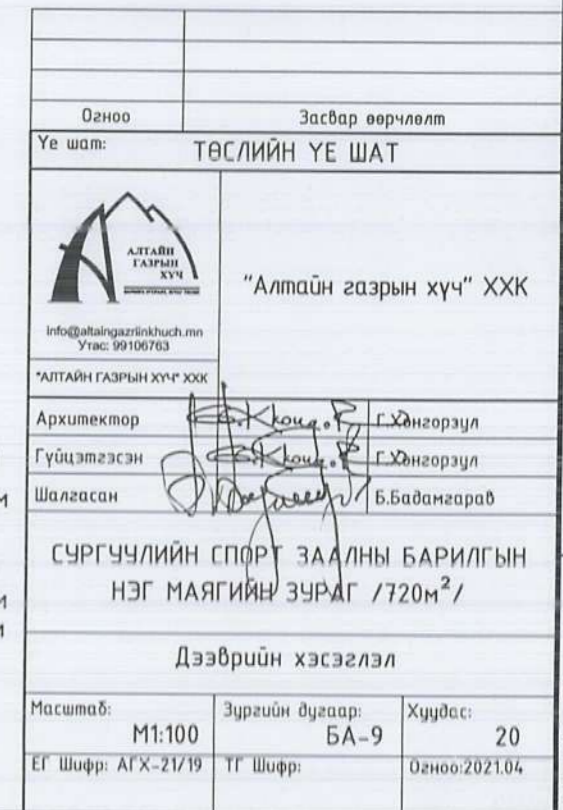 Огноо Засвар өөрчлөлт
Үе шат: ТӨСЛИЙН ҮЕ ШАТ
АЛТАЙН
ГАЗРЫН
ХҮЧ
"Алтайн газрын хүч" ХХК
info@altaingazriinkhuch.mn
Утас: 99106763
"АЛТАЙН ГАЗРЫН ХҮЧ" ХХК
Архитектор Г.Хонгорзул
Гүйцэтгэсэн Г.Хонгорзул
Шалгасан Б.Бадамгарав
СУРГУУЛИЙН СПОРТ ЗААЛНЫ БАРИЛГЫН
НЭГ МАЯГИЙН ЗУРАГ /720м²/
Дээврийн хэсэглэл
Масштаб: Зургийн дугаар: Хуудас:
М1:100 БА-9 20
ЕГ Шифр: АГХ-21/19 ТГ Шифр: Огноо:2021.04